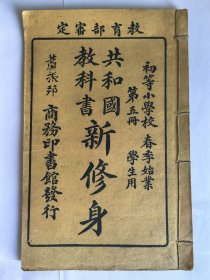 教育部審定
初等小學校 春季始業
第五冊 學生用
共和國
教科書
新修身
蕭振邦
商務印書館發行